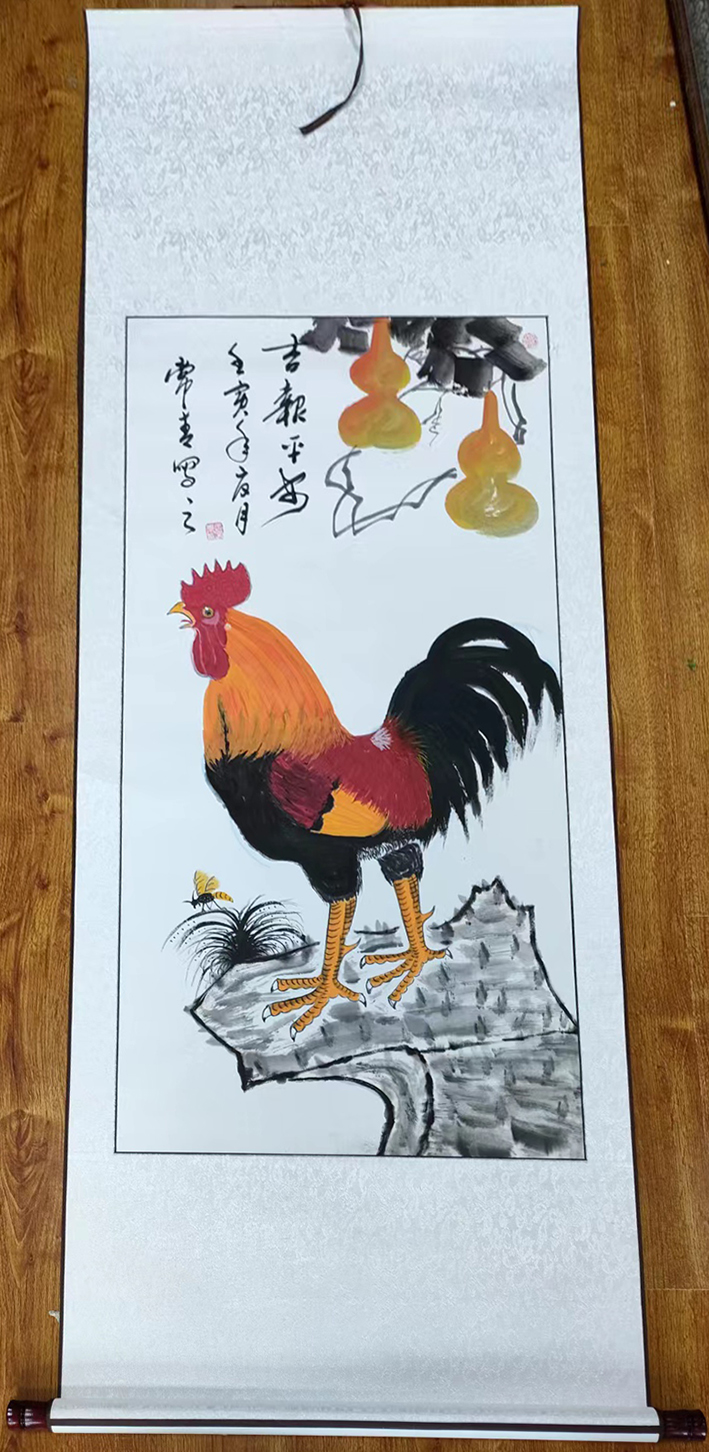 吉報平安
壬寅年夏月
常青寫之